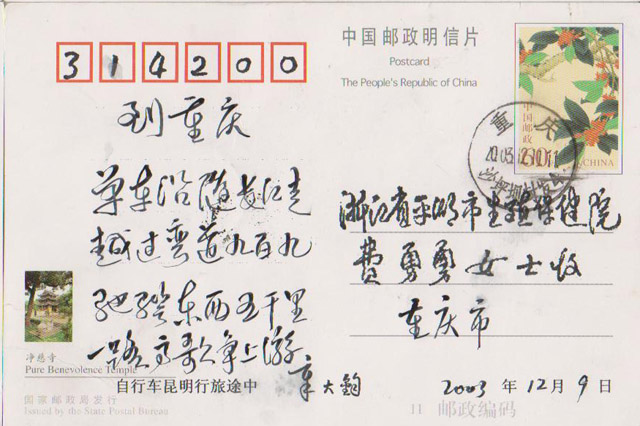 中国邮政明信片
Postcard
The People's Republic of China
314200
到重庆
单车沿随长江走
越过弯道九百九
驰骋东西五千里
一路高歌争上游
章大钧
自行车昆明行旅途中
浙江省平湖市生殖保健院
费勇勇女士收
重庆市
2003年12月9日
净慈寺
Pure Benevolence Temple
国家邮政局发行
Issued by the State Postal Bureau
11 邮政编码
中国邮政
CHINA
重庆